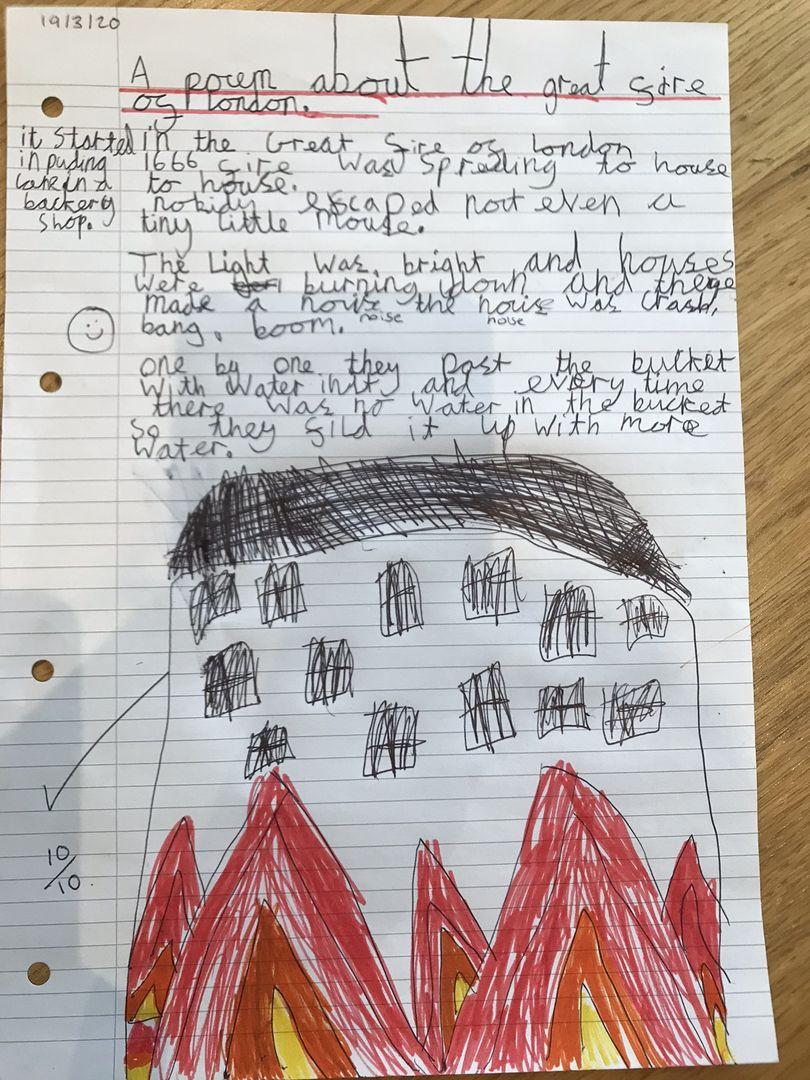 19/3/20
A poem about the great fire
of london.
it started
in puding
lane in a
backery
shop.
in the Great fire of london
1666 fire was spreading to house
to house.
nobidy escaped not even a
tiny little mouse.
The Light was bright and houses
were burning down and there
made a noize the noize was crash,
noise noise
bang, boom.
one by one they past the bucket
with water in it, and every time
there was no water in the bucket
so they fild it up with more
water.
10/10